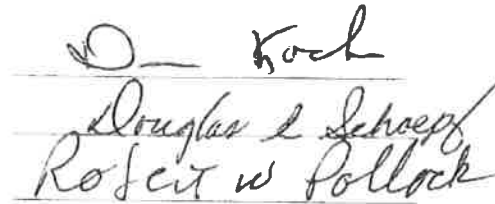 D Koch
Douglas L Schoepf
Robert W Pollock